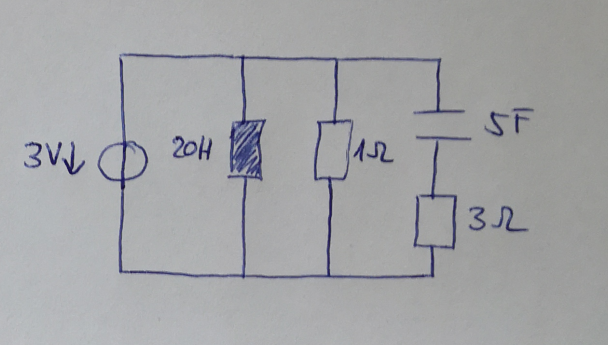 3V↓
20H
1Ω
5F
3Ω